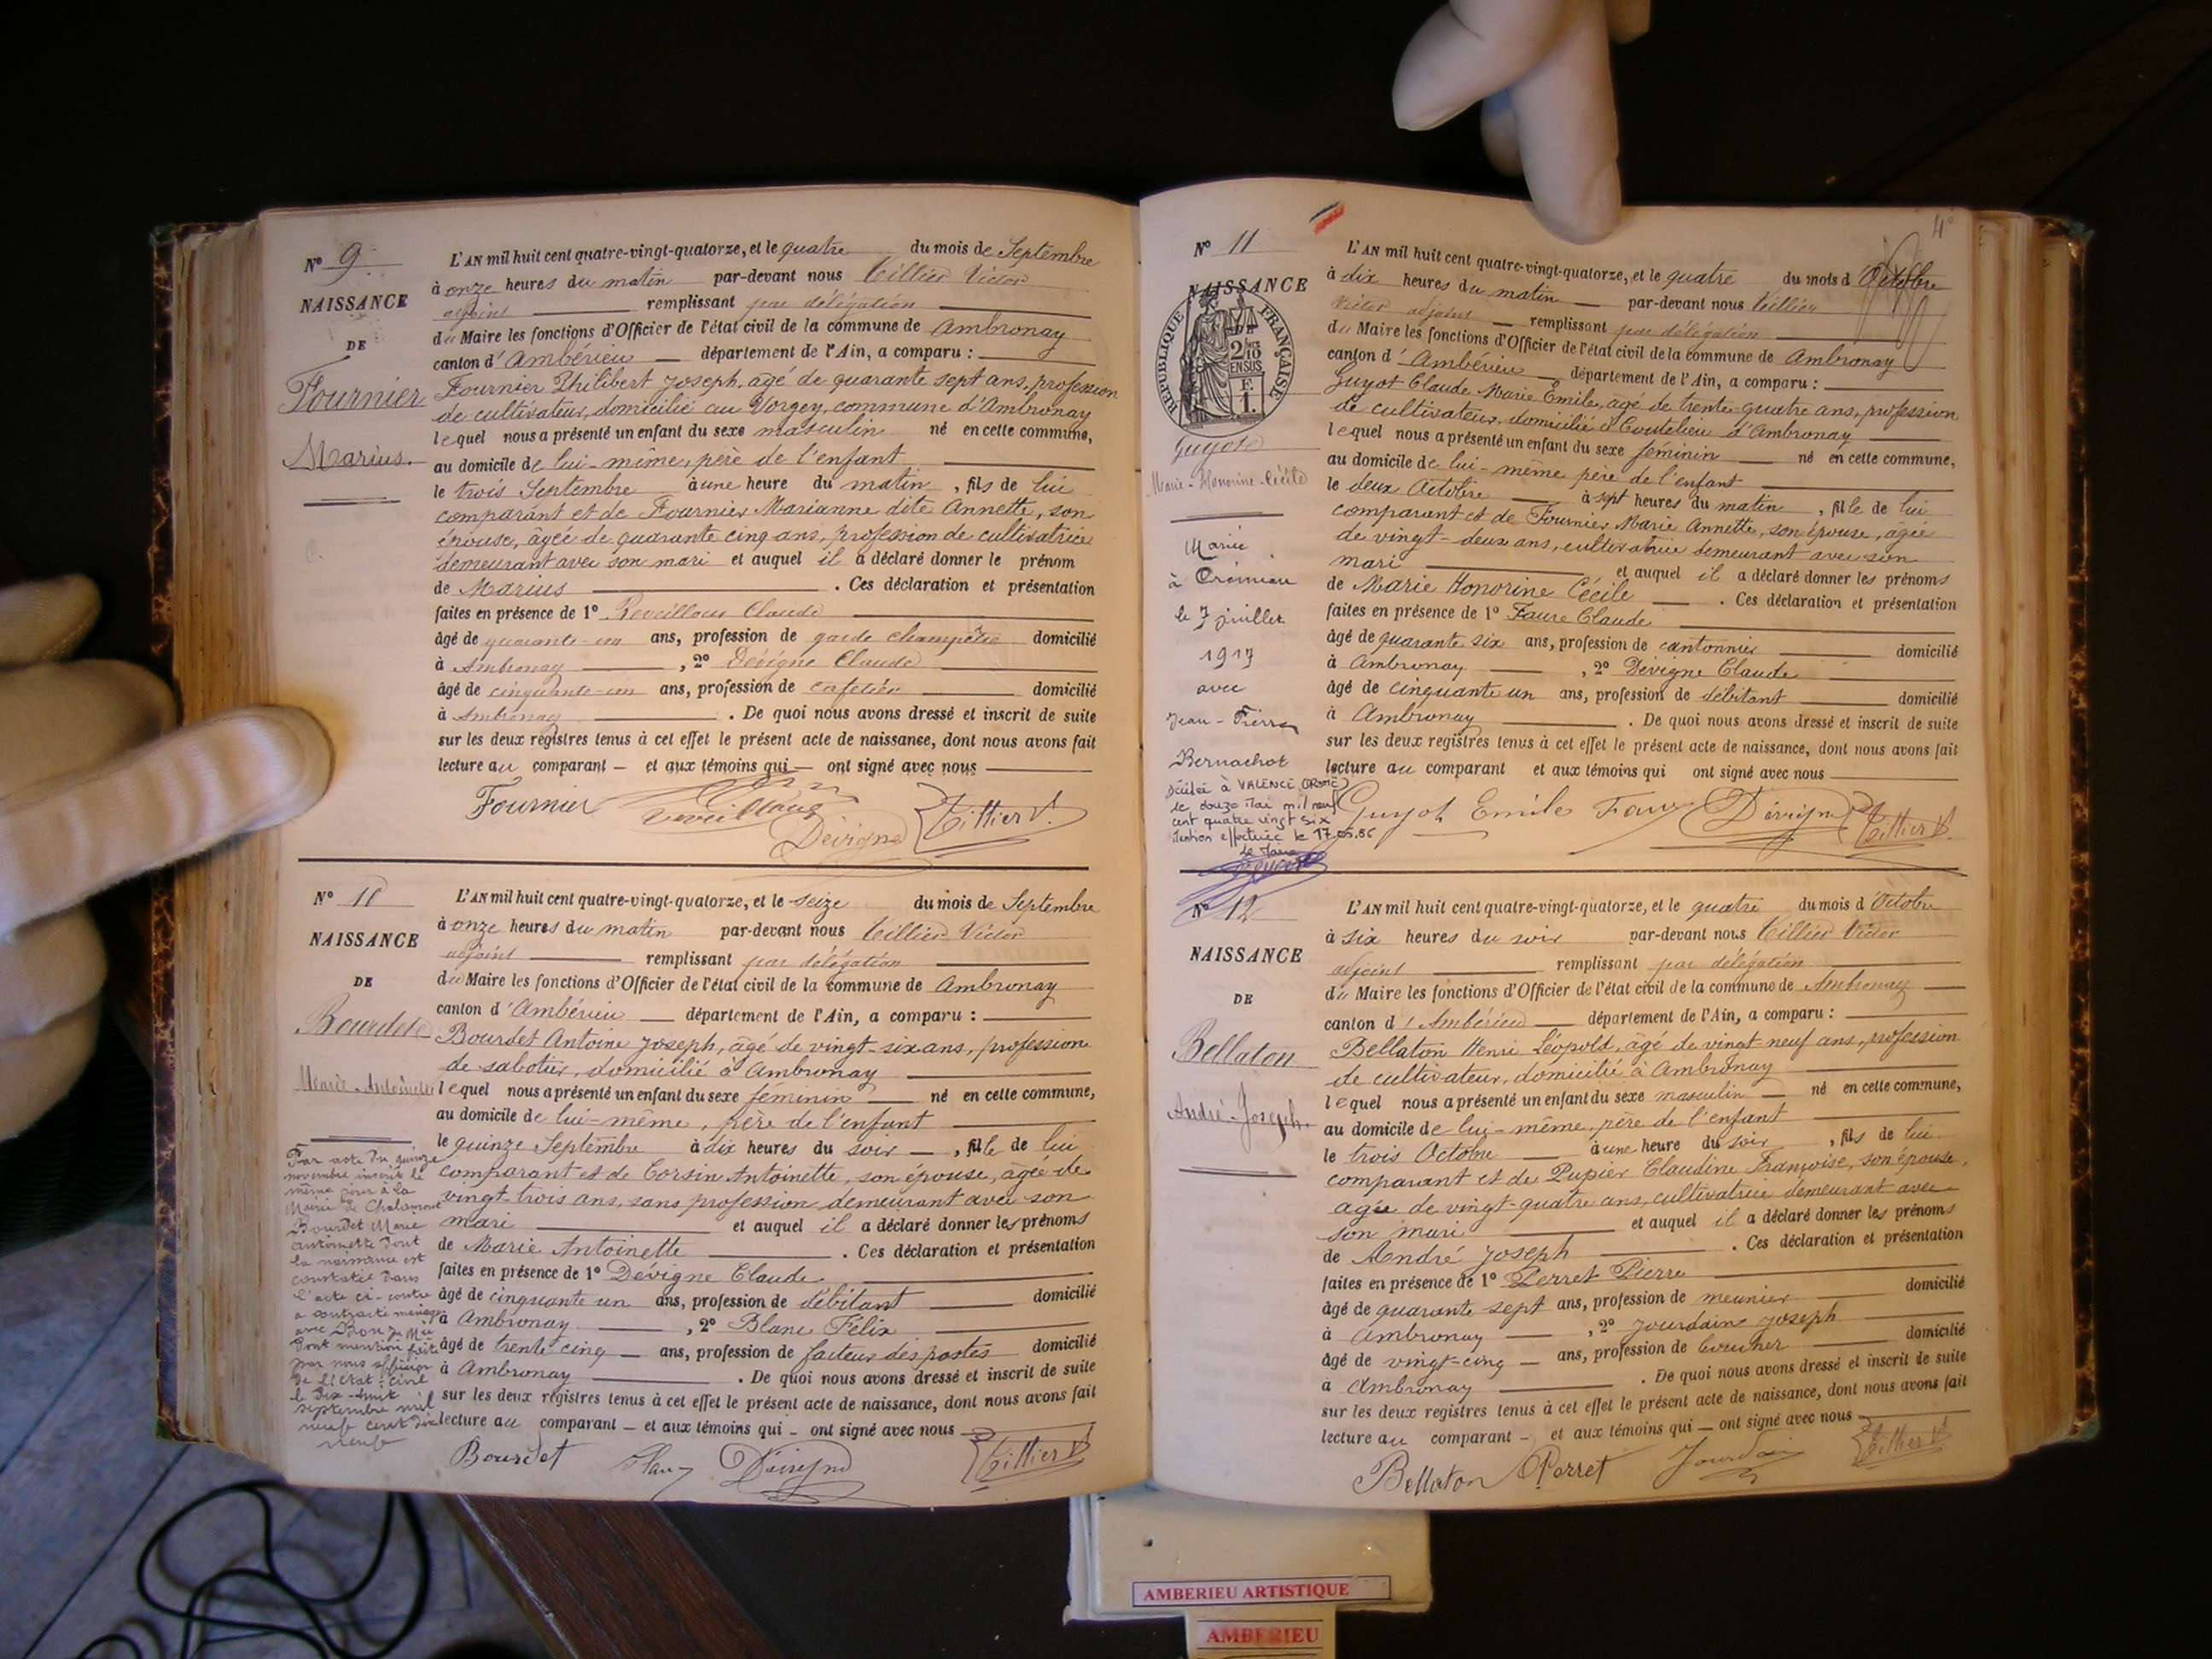 Nº 9
NAISSANCE
DE
Fournier
Marius.
L'AN mil huit cent quatre-vingt-quatorze, et le quatre du mois de Septembre
à onze heures du matin par-devant nous Tillier Victor
adjoint remplissant par délégation
du Maire les fonctions d'Officier de l'état civil de la commune de Ambronay
canton d'Ambérieu département de l'Ain, a comparu :
Fournier Philibert Joseph, âgé de quarante sept ans, profession
de cultivateur, domicilié au Vorgey, commune d'Ambronay
lequel nous a présenté un enfant du sexe masculin né en cette commune,
au domicile de lui-même, père de l'enfant
le trois Septembre à une heure du matin, fils de lui
comparant et de Fournier Marianne dite Annette, son
épouse, âgée de quarante cinq ans, profession de cultivatrice
demeurant avec son mari et auquel il a déclaré donner le prénom
de Marius . Ces déclaration et présentation
faites en présence de 1º Reveilloux Claude
âgé de quarante-un ans, profession de garde champêtre domicilié
à Ambronay , 2º Dévigne Claude
âgé de cinquante-un ans, profession de cafetier domicilié
à Ambronay . De quoi nous avons dressé et inscrit de suite
sur les deux registres tenus à cet effet le présent acte de naissance, dont nous avons fait
lecture au comparant et aux témoins qui ont signé avec nous
Fournier Reveilloux Dévigne Tillier V.
Nº 10
NAISSANCE
DE
Bourdet
Marie-Antoinette
Par acte du quinze
novembre inscrit le
même jour à la
Mairie de Chalamont
Bourdet Marie
antoinette dont
la naissance est
constatée dans
l'acte ci-contre
a contracté mariage
avec
Dont mention faite
par nous officier
de l'Etat-Civil
le dix-huit
septembre mil
neuf cent dix
neuf
L'AN mil huit cent quatre-vingt-quatorze, et le seize du mois de Septembre
à onze heures du matin par-devant nous Tillier Victor
adjoint remplissant par délégation
du Maire les fonctions d'Officier de l'état civil de la commune de Ambronay
canton d'Ambérieu département de l'Ain, a comparu :
Bourdet Antoine Joseph, âgé de vingt-six ans, profession
de sabotier, domicilié à Ambronay
lequel nous a présenté un enfant du sexe féminin né en cette commune,
au domicile de lui-même, père de l'enfant
le quinze Septembre à dix heures du soir, fille de lui
comparant et de Corsin Antoinette, son épouse, agée de
vingt-trois ans, sans profession demeurant avec son
mari et auquel il a déclaré donner les prénoms
de Marie Antoinette . Ces déclaration et présentation
faites en présence de 1º Dévigne Claude
âgé de cinquante un ans, profession de débitant domicilié
à Ambronay , 2º Blanc Félix
âgé de trente cinq ans, profession de facteur des postes domicilié
à Ambronay . De quoi nous avons dressé et inscrit de suite
sur les deux registres tenus à cet effet le présent acte de naissance, dont nous avons fait
lecture au comparant et aux témoins qui ont signé avec nous
Bourdet Blanc Dévigne Tillier V
4
Nº 11
NAISSANCE
DE
RÉPUBLIQUE FRANÇAISE
2/10
EN SUS
F.
1.
Guyot
Marie-Honorine-Cécile
Mariée
à Crémieu
le 7 juillet
1917
avec
Jean-Pierre
Bernachot
Décédée à VALENCE (DROME)
le douze Mai mil neuf
cent quatre vingt six
Mention effectuée le 17.05.86
Le Maire
L'AN mil huit cent quatre-vingt-quatorze, et le quatre du mois d'Octobre
à dix heures du matin par-devant nous Tillier
Victor adjoint remplissant par délégation
du Maire les fonctions d'Officier de l'état civil de la commune de Ambronay
canton d'Ambérieu département de l'Ain, a comparu :
Guyot Claude Marie Émile, âgé de trente-quatre ans, profession
de cultivateur, domicilié à Coutelieu d'Ambronay
lequel nous a présenté un enfant du sexe féminin né en cette commune,
au domicile de lui-même père de l'enfant
le deux Octobre à sept heures du matin, fille de lui
comparant et de Fournier Marie Annette, son épouse, âgée
de vingt-deux ans, cultivatrice demeurant avec son
mari et auquel il a déclaré donner les prénoms
de Marie Honorine Cécile . Ces déclaration et présentation
faites en présence de 1º Faure Claude
âgé de quarante six ans, profession de cantonnier domicilié
à Ambronay , 2º Dévigne Claude
âgé de cinquante un ans, profession de débitant domicilié
à Ambronay . De quoi nous avons dressé et inscrit de suite
sur les deux registres tenus à cet effet le présent acte de naissance, dont nous avons fait
lecture au comparant et aux témoins qui ont signé avec nous
Guyot Emile Faure Dévigne Tillier V
Nº 12
NAISSANCE
DE
Bellaton
André-Joseph.
L'AN mil huit cent quatre-vingt-quatorze, et le quatre du mois d'Octobre
à six heures du soir par-devant nous Tillier Victor
adjoint remplissant par délégation
du Maire les fonctions d'Officier de l'état civil de la commune de Ambronay
canton d'Ambérieu département de l'Ain, a comparu :
Bellaton Henri Léopold, âgé de vingt-neuf ans, profession
de cultivateur, domicilié à Ambronay
lequel nous a présenté un enfant du sexe masculin né en cette commune,
au domicile de lui-même, père de l'enfant
le trois Octobre à une heure du soir, fils de lui
comparant et de Pupier Claudine Françoise, son épouse,
agée de vingt-quatre ans, cultivatrice demeurant avec
son mari et auquel il a déclaré donner les prénoms
de André Joseph . Ces déclaration et présentation
faites en présence de 1º Perret Pierre
âgé de quarante sept ans, profession de meunier domicilié
à Ambronay , 2º Jourdain Joseph
âgé de vingt-cinq ans, profession de boucher domicilié
à Ambronay . De quoi nous avons dressé et inscrit de suite
sur les deux registres tenus à cet effet le présent acte de naissance, dont nous avons fait
lecture au comparant et aux témoins qui ont signé avec nous
Bellaton Perret Jourdain Tillier V
AMBERIEU ARTISTIQUE
AMBERIEU